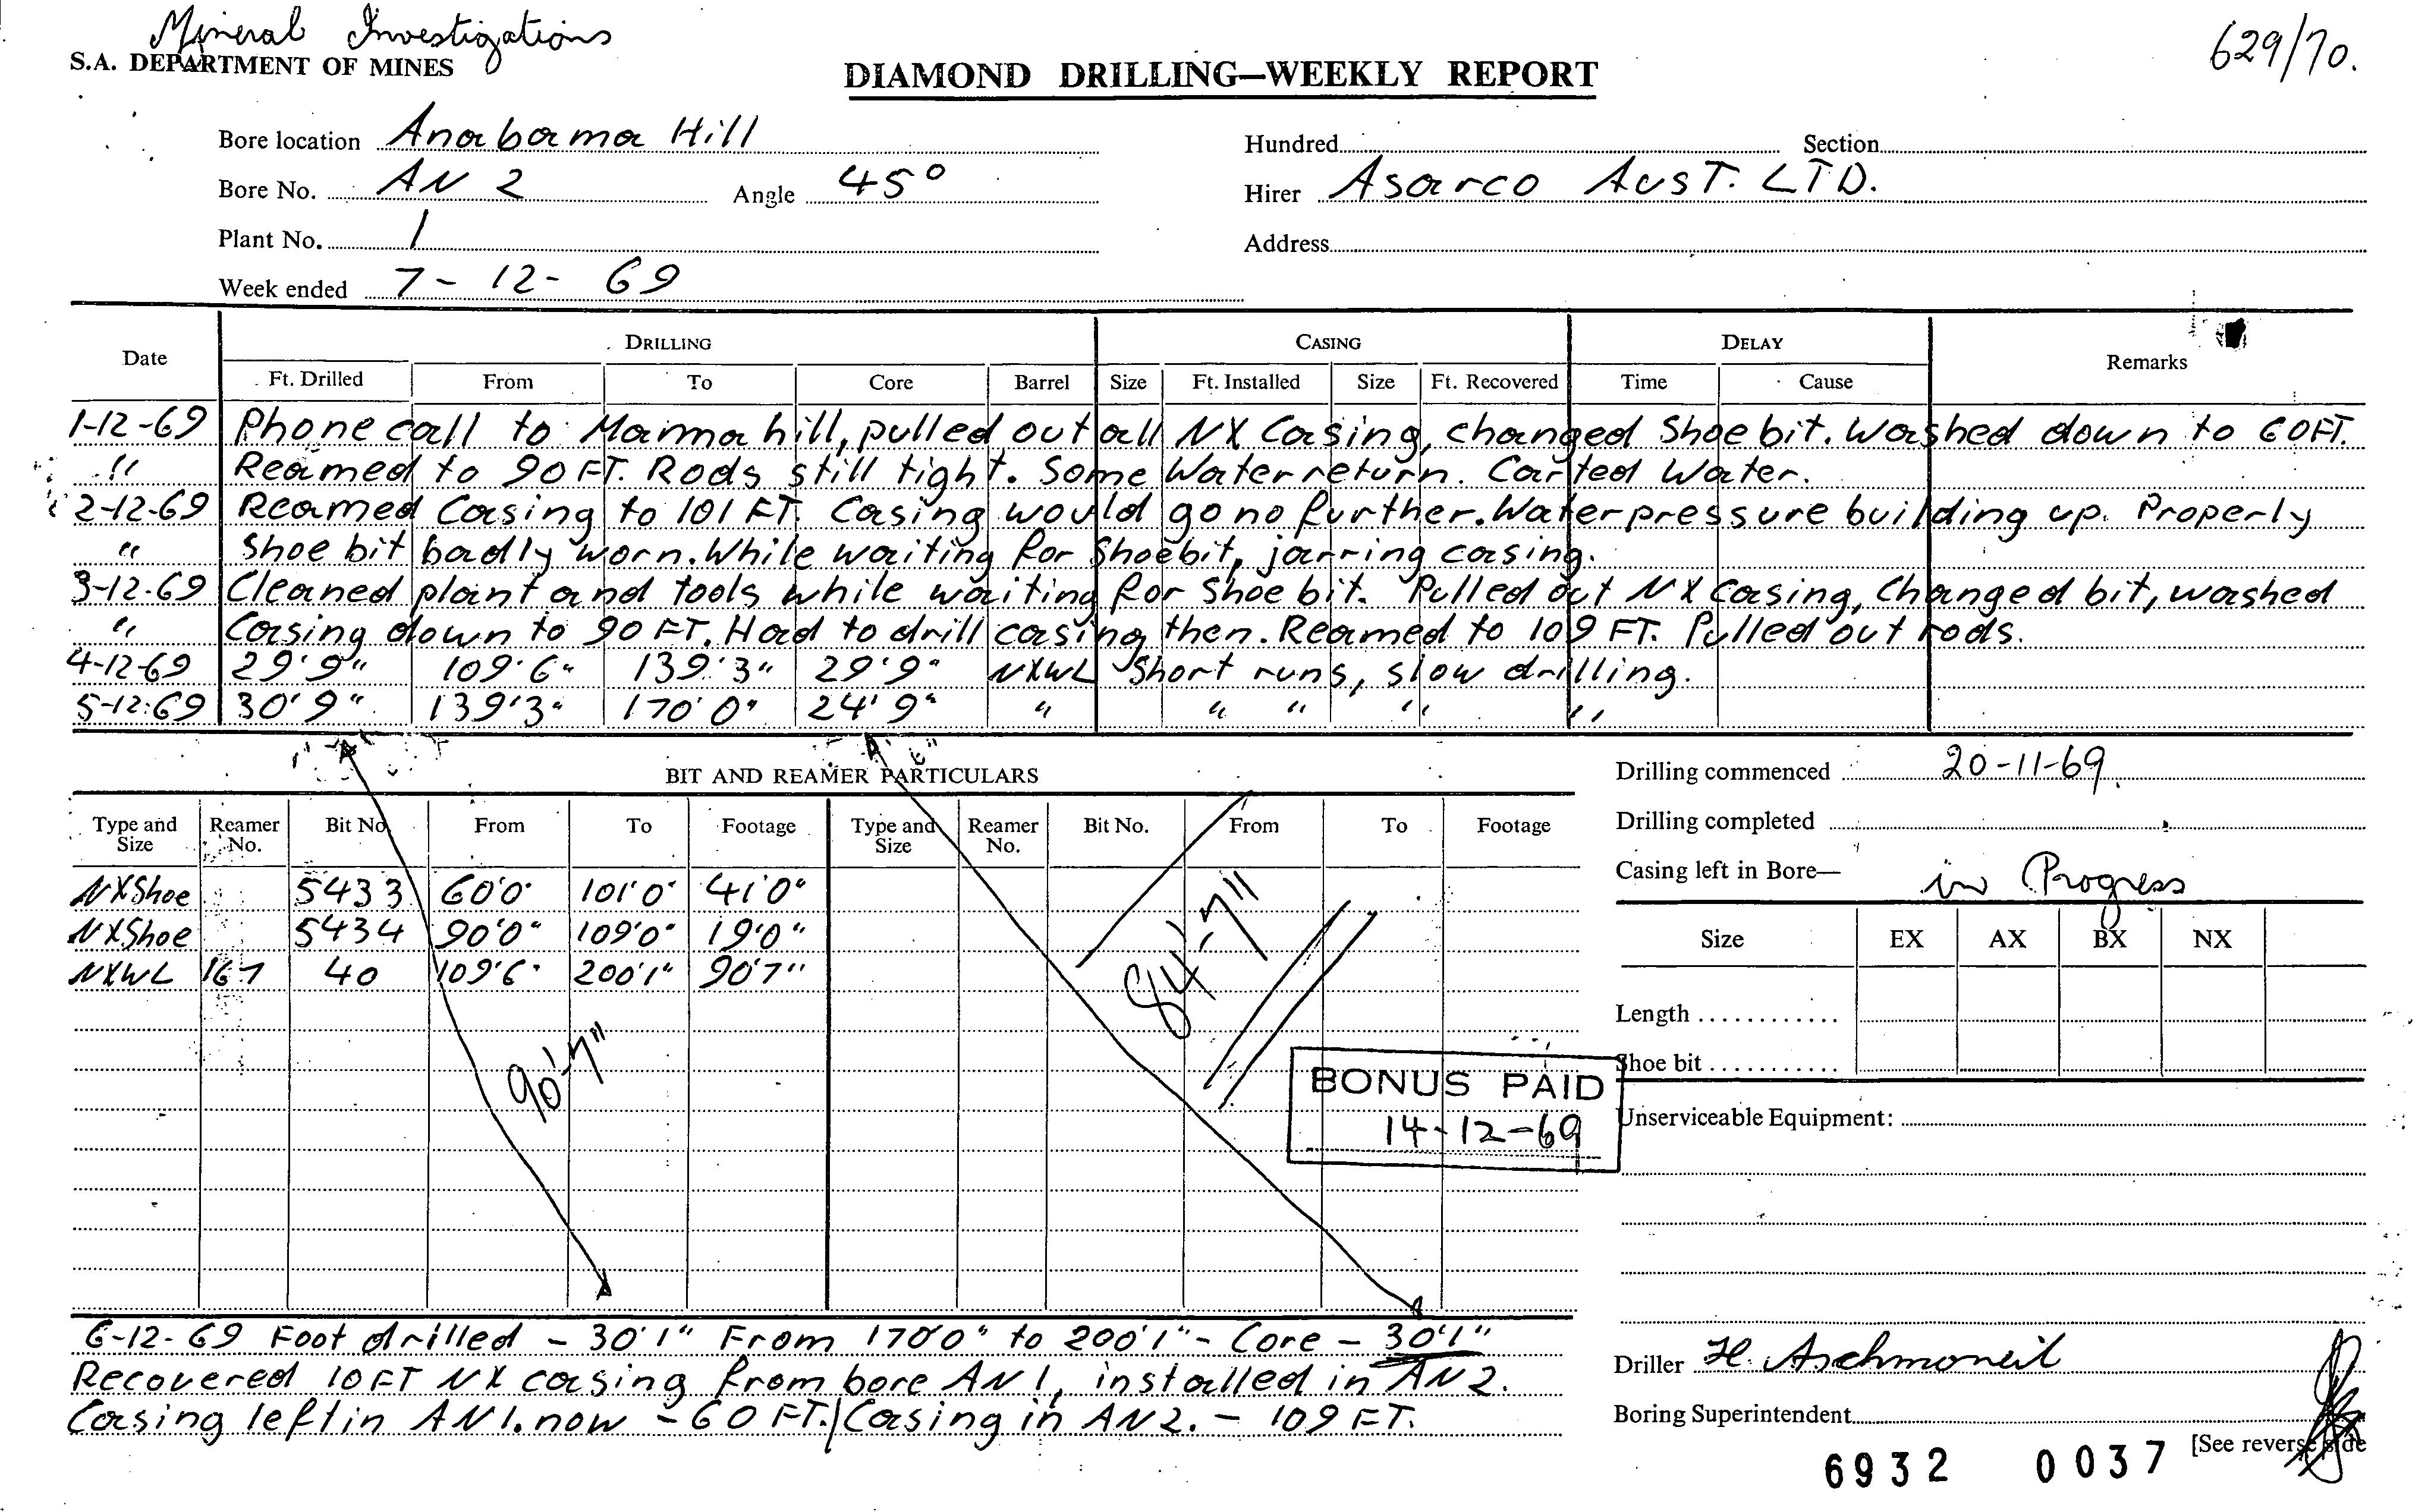 Mineral Investigations
629/70.
S.A. DEPARTMENT OF MINES
DIAMOND DRILLING—WEEKLY REPORT
Bore location Anabama Hill
Hundred Section
Bore No. AN 2 Angle 45°
Hirer Asarco Aust. LTD.
Plant No. 1
Address
Week ended 7 - 12 - 69
Date DRILLING CASING DELAY Remarks
Ft. Drilled From To Core Barrel Size Ft. Installed Size Ft. Recovered Time Cause
1-12-69 Phone call to Mannahill, pulled out all NX Casing, changed Shoe bit. Washed down to 60FT.
" Reamed to 90 FT. Rods still tight. Some Water return. Carted Water.
2-12-69 Reamed Casing to 101 FT. Casing would go no further. Water pressure building up. Properly
" Shoe bit badly worn. While waiting for Shoebit, jarring casing.
3-12-69 Cleaned plant and tools while waiting for Shoe bit. Pulled out NX Casing, Changed bit, washed
" Casing down to 90 FT. Had to drill casing then. Reamed to 109 FT. Pulled out rods.
4-12-69 29'9" 109'6" 139'3" 29'9" NXWL Short runs, slow drilling.
5-12-69 30'9" 139'3" 170'0" 24'9" " " " " "
BIT AND REAMER PARTICULARS
Drilling commenced 20-11-69.
Type and Size Reamer No. Bit No. From To Footage Type and Size Reamer No. Bit No. From To Footage
Drilling completed
Casing left in Bore— in Progress
NXShoe 5433 60'0" 101'0" 41'0"
NXShoe 5434 90'0" 109'0" 19'0"
NXWL 167 40 109'6" 200'1" 90'7"
Size EX AX BX NX
Length
Shoe bit
90'-7"
84'-7"
BONUS PAID
14-12-69
Unserviceable Equipment:
6-12-69 Foot drilled - 30'1" From 170'0" to 200'1" - Core - 30'1"
Recovered 10FT NX casing from bore AN1, installed in AN2.
Casing left in AN1. now - 60 FT./Casing in AN2. - 109 FT.
Driller H. Aschmoneit
Boring Superintendent
[See reverse side
6932 0037